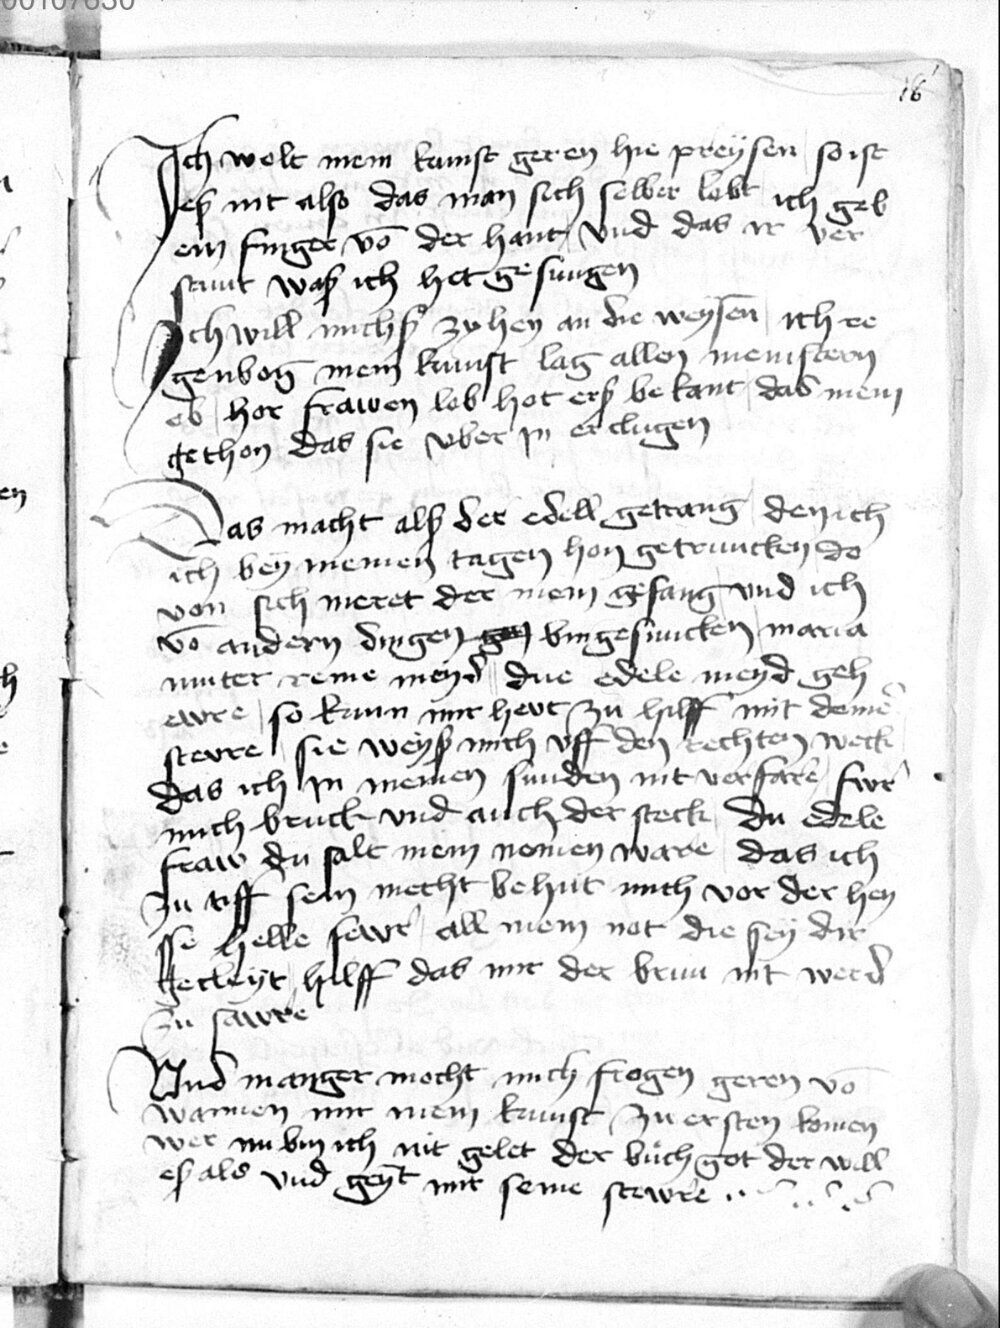 00107630
16
Ich wolt mein kunst geren hie preÿsen / so ist
eß nit also das man sich selber lobt ich geb
ein finger vō der hant / und das ir ver
stunt waß ich het gesungen
Ich will michß zyhen an die weysen / ich re
genbog mein kunst lag allen meinstern
ob / hor frawen lob hot erß bekant / das mein
gethon das sie vber in erclugen
Das macht alß der edell getrang / den ich
ich beÿ meinen tagen hon getruncken do
von sich meret der mein gesang und ich
vō andern dingen bin gesuncken / maria
muter reine meyd / die edele meyd geh
ewre / so kum mir heut zu hilff mit deinē
stewre / sie weyß mich vff den rechten weck
das ich in meinen sunden nit verfare / fur
mich bruck und auch der steck / du edele
fraw du salt mein nemen ware / das ich
zu tiff sein mecht behut mich vor der hey
sse helle fewr / all mein not die seÿ dir
gecleÿt / hilff das mir der brun nit werd
zu sawre
Und manger mocht mich frogen geren vō
wannen mir mein kunst zu ersten komen
wer nu bin ich nit gelet der buch got der will
eß als und geyt mir seine stewre